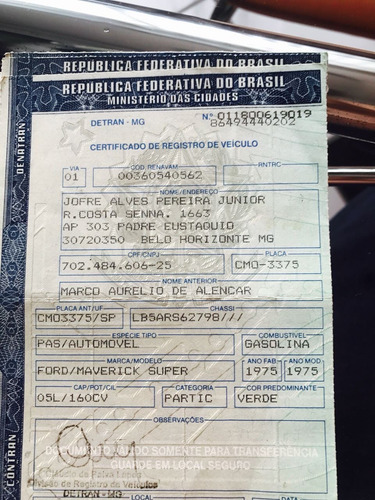 REPUBLICA FEDERATIVA DO BRASIL
REPUBLICA FEDERATIVA DO BRASIL
MINISTÉRIO DAS CIDADES
DENATRAN
CONTRAN
DETRAN - MG
Nº 011800619019
86494440202
CERTIFICADO DE REGISTRO DE VEÍCULO
VIA
COD. RENAVAM
RNTRC
01
00360540562
NOME/ENDEREÇO
JOFRE ALVES PEREIRA JUNIOR
R.COSTA SENNA. 1663
AP 303 PADRE EUSTAQUIO
30720350 BELO HORIZONTE MG
CPF/CNPJ
PLACA
702.484.606-25
CMO-3375
NOME ANTERIOR
MARCO AURELIO DE ALENCAR
PLACA ANT/UF
CHASSI
CMO3375/SP
LB5ARS62798///
ESPÉCIE TIPO
COMBUSTÍVEL
PAS/AUTOMOVEL
GASOLINA
MARCA/MODELO
ANO FAB.
ANO MOD
FORD/MAVERICK SUPER
1975
1975
CAP/POT/CIL
CATEGORIA
COR PREDOMINANTE
05L/160CV
PARTIC
VERDE
OBSERVAÇÕES
DOCUMENTO VÁLIDO SOMENTE PARA TRANSFERÊNCIA
GUARDE EM LOCAL SEGURO
Divisão de Registro de Veículos
DETRAN-MG
LOCAL
DATA